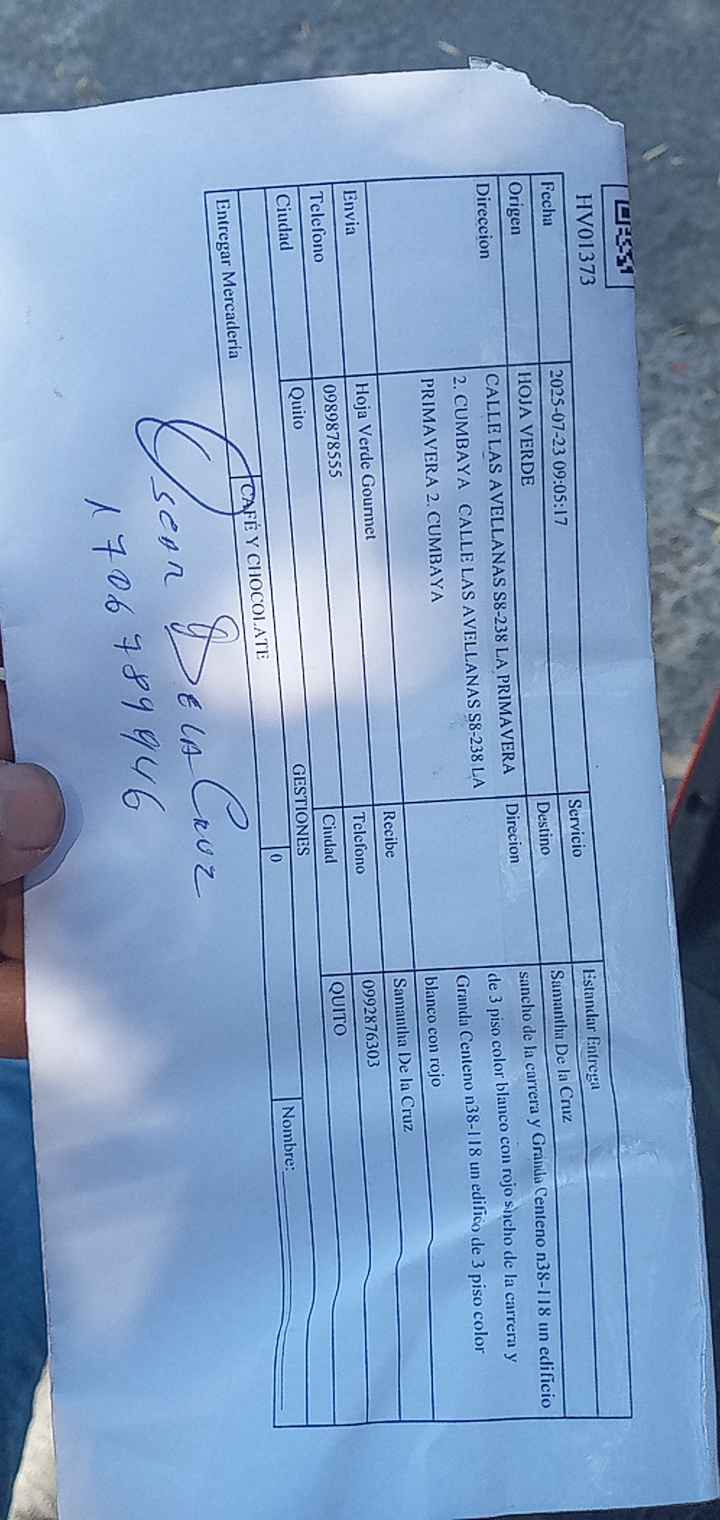 HV01373
Servicio Estandar Entrega
Fecha 2025-07-23 09:05:17 Destino Samantha De la Cruz
Origen HOJA VERDE Direcion sancho de la carrera y Granda Centeno n38-118 un edificio
Direccion CALLE LAS AVELLANAS S8-238 LA PRIMAVERA de 3 piso color blanco con rojo sncho de la carrera y
2. CUMBAYA CALLE LAS AVELLANAS S8-238 LA Granda Centeno n38-118 un edifico de 3 piso color
PRIMAVERA 2. CUMBAYA blanco con rojo
Envia Hoja Verde Gourmet Recibe Samantha De la Cruz
Telefono 0989878555 Telefono 0992876303
Ciudad Quito Ciudad QUITO
GESTIONES
Entregar Mercadería CAFÉ Y CHOCOLATE 0 Nombre:
Oscar De la Cruz
1706789946